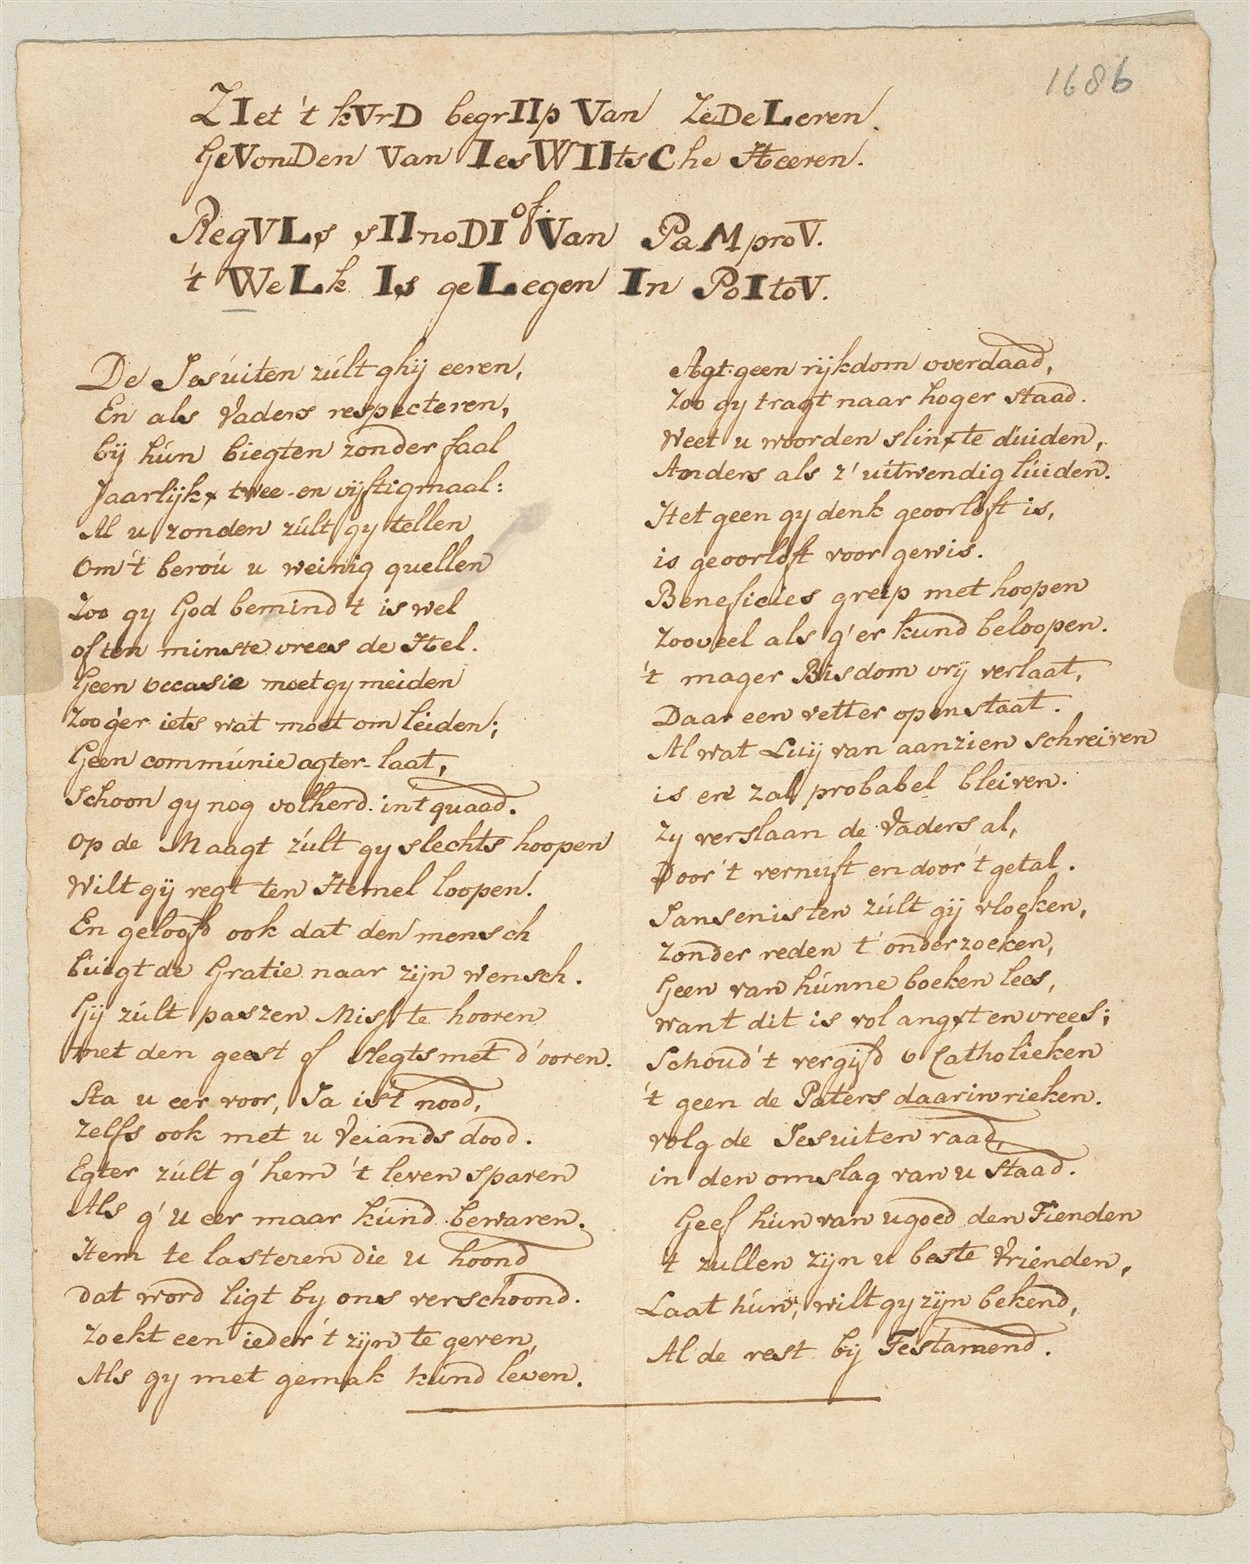 1686
ZIet 't kVrD begrIIp Van ZeDeLeren
GeVonDen Van IesWIItsChe Heeren.
RegVLs sIInoDI of Van PaMproV.
't WeLk Is geLegen In PoItoV.
De Jesuiten zúlt ghij eeren,
En als Vaders respecteren,
bij hún biegten zonder faal
Jaarlijkx twee-en vijftigmaal:
Al u zonden zúlt gy tellen
Om 't beroú u weinig quellen
Zoo gy God bemind 't is wel
of ten minste vrees de Hel.
Geen occasie moet gy meiden
Zoo g'er iets wat moet om leiden;
Geen commúnie agter-laat,
Schoon gy nog volherd in 't quaad.
Op de Maagt zúlt gy slechts hoopen
Wilt gij regt ten Hemel loopen.
En geloofd ook dat den mensch
búigt de Gratie naar zijn wensch.
Gij zúlt paszen Miss te hooren
met den geest of slegts met d'ooren.
Sta u eer voor, Ja is 't nood,
Zelfs ook met u Veiands dood.
Egter zúlt g' hem 't leven sparen
Als g' u eer maar kúnd bewaren.
Item te lasteren die u hoond
dat word ligt by ons verschoond.
Zoekt een ieder 't zijn te geven,
Als gy met gemak kúnd leven.
Agt geen rijkdom overdaad,
Zoo gy tragt naar hoger staad.
Weet u woorden slinx te duiden,
Anders als z' uitwendig lúiden.
Het geen gy denk geoorloft is,
is geoorloft voor gewis.
Beneficies greip met hoopen
Zooveel als g' er kund beloopen.
't mager Bisdom vrij verlaat,
Daar een vetter open staat.
Al wat Luij van aanzien schreiven
is en zal probabel bleiven.
Zy verslaan de Vaders al,
Door 't vernuft en door 't getal.
Jansenisten zúlt gij vloeken,
Zonder reden t' onderzoeken,
Geen van húnne boeken lees,
want dit is vol angxt en vrees;
Schoud 't vergifd o Catholieken
't geen de Paters daarin rieken.
volg de Jesuiten raad,
in den omslag van u Staad.
Geef hún van u goed den Tienden
't zullen zijn u beste Vrienden,
Laat hún, wilt gy zijn bekend,
Al de rest bij Testamend.